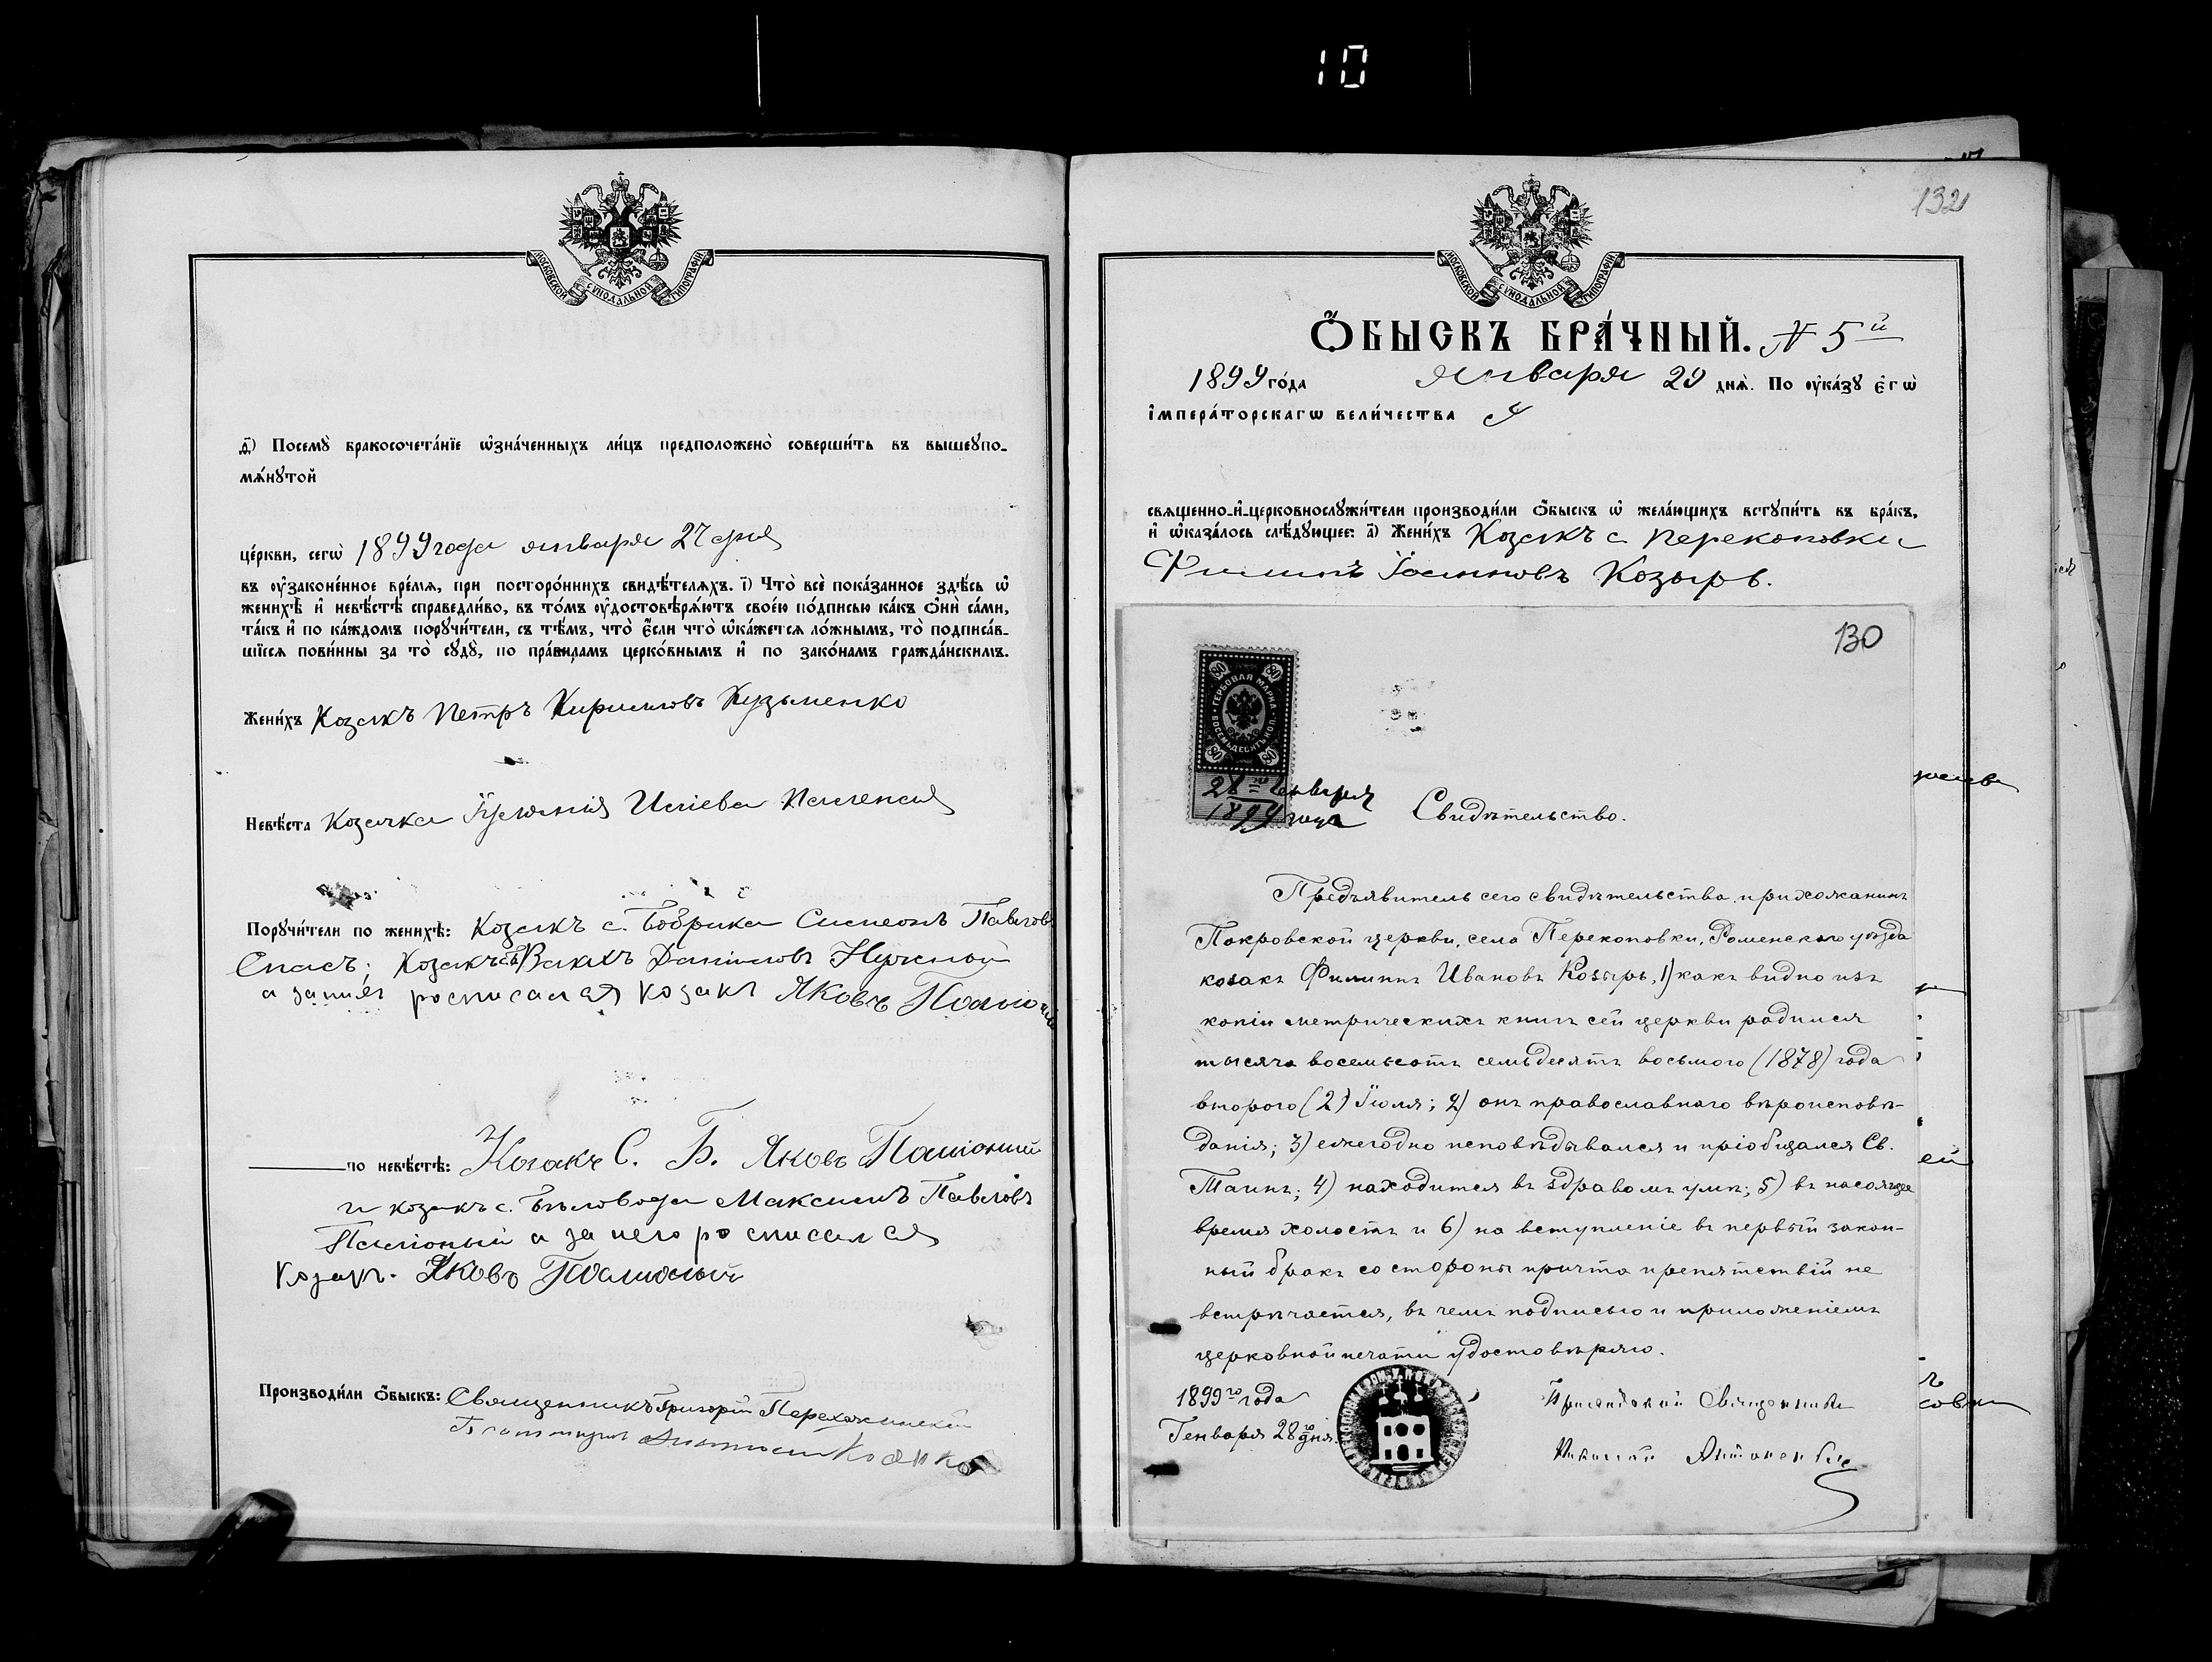 10
МОСКОВСКОЙ СѴНОДАЛЬНОЙ ТИПОГРАФІИ
ѳ҃) Посемꙋ̀ бракосочета́нїе ѡ҆зна́ченныхъ ли́цъ предположено̀ соверши́ть въ вышеꙋпо-
мѧ́нꙋтой
це́ркви, сегѡ̀ 1899 года января 27 дня
въ ᲂу҆законе́нное вре́мѧ, при посторо́ннихъ свидѣ́телѧхъ. і҃) Что̀ всѐ пока́занное здѣ́сь ѡ҆
женихѣ̀ и҆ невѣ́стѣ справедли́во, въ то́мъ ᲂу҆достовѣрѧ́ютъ свое́ю по́дписью ка́къ ѻ҆нѝ са́ми,
та́къ и҆ по ка́ждомъ порꙋчи́тели, съ тѣ́мъ, что̀ є҆́сли что̀ ѡ҆ка́жетсѧ ло́жнымъ, то̀ подписа́в-
шїесѧ пови́нны за то̀ сꙋдꙋ̀, по пра́виламъ церко́внымъ и҆ по зако́намъ гражда́нскимъ.
Жени́хъ Козакъ Петръ Кириловъ Кузьменко
Невѣ́ста Козачка Иліева
Порꙋчи́тели по женихѣ̀: Козакъ с. Бобрика Симеонъ Павлов
Спасъ; Козакъ с. Б. Вакхъ Даніиловъ Нужный
а за них росписался козакъ Яковъ
по невѣ́стѣ: Козакъ С. Б. Яковъ Палiоний
и козакъ с. Бѣловода Максимъ Павловъ
Палiоный а за него росписался
Козакъ Яковъ
Производи́ли ѻ҆́быскъ: Священникъ Григорій
132
МОСКОВСКОЙ СѴНОДАЛЬНОЙ ТИПОГРАФІИ
Ѻ҆́БЫСКЪ БРА́ЧНЫЙ. № 5й
1899 го́да января 29 днѧ̀. По ᲂу҆ка́зꙋ є҆гѡ̀
і҆мпера́торскагѡ вели́чества
свѧщенно-и҆-церковнослꙋжи́тели производи́ли ѻ҆́быскъ ѡ҆ жела́ющихъ встꙋпи́ть въ бра́къ,
и҆ ѡ҆каза́лось слѣ́дꙋющее: а҃) Жени́хъ Козакъ с Перекоповки
Филипъ Іоанновъ Козырь.
130
80 80
ГЕРБОВАЯ МАРКА ВОСЕМЬДЕСЯТЪ КОП.
80 80
28го Января
1899 года
Свидѣтельство.
Предъявитель сего свидѣтельства, прихожанинъ
Покровской церкви, села Перекоповки, Роменскаго уѣзда
козакъ Филиппъ Ивановъ Козырь, 1) какъ видно изъ
копіи метрическихъ книгъ сей церкви родился
тысяча восемьсотъ семьдесятъ восьмого (1878) года
второго (2) Іюля; 2) онъ православнаго вѣроисповѣ-
данія; 3) ежегодно исповѣдывался и пріобщался Св.
Таинъ; 4) находится въ здравомъ умѣ; 5) въ настояще
время холостъ и 6) на вступленіе въ первый закон-
ный бракъ со стороны причта препятствій не
встрѣчается, въ чемъ подписью и приложеніемъ
церковной печати удостовѣряю.
1899го года
Генваря 28го дня.
Приходскій Священникъ
Николай Антоненко